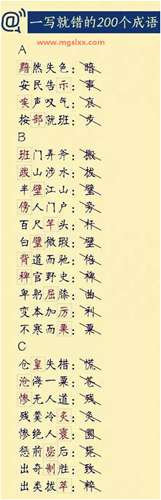 一写就错的200个成语
www.mgslxs.com
A
黯然失色：暗
安民告示：事
唉声叹气：哀
按部就班：步
B
班门弄斧：搬
跋山涉水：拔
半壁江山：璧
傍人门户：旁
百尺竿头：杆
白璧微瑕：壁
背道而驰：
稗官野史：裨
卑躬屈膝：曲
变本加厉：利
不寒而栗：粟
C
仓皇失措：慌
沧海一粟：苍
惨无人道：残
残羹冷炙：灸
惨绝人寰：圜
惩前毖后：
出奇制胜：致
出类拔萃：粹